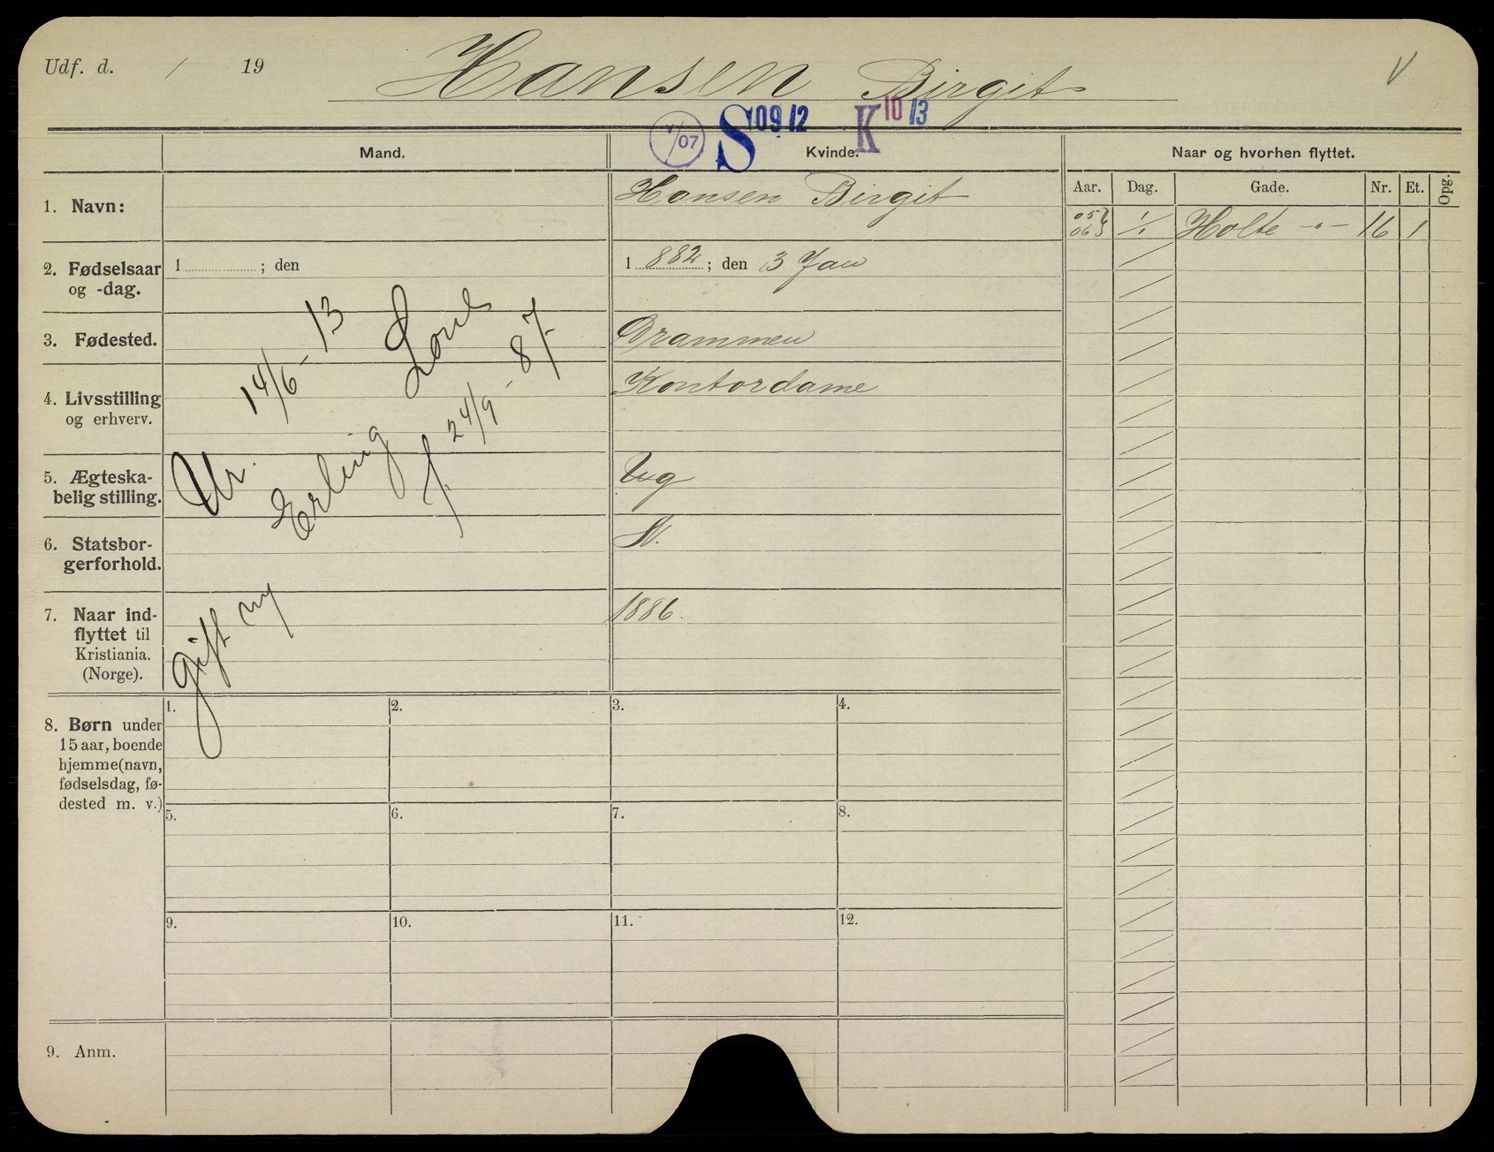 Udf. d. / 19 Hansen Birgit V
V/07 S 09 12 K 10 13
Mand. Kvinde. Naar og hvorhen flyttet.
Aar. Dag. Gade. Nr. Et. Opg.
1. Navn: Hansen Birgit
1/1 Holte -"- 16 1
2. Fødselsaar
og -dag.
1 ; den
1 882 ; den 3 Jan
3. Fødested. Drammen
4. Livsstilling
og erhverv.
Kontordame
5. Ægteska-
belig stilling.
Ug
6. Statsbor-
gerforhold.
N.
7. Naar ind-
flyttet til
Kristiania.
(Norge).
1886.
gift m/
Ur. 14/6 - 13
Erling
f. 24/9 - 87.
8. Børn under
15 aar, boende
hjemme (navn,
fødselsdag, fø-
dested m. v.)
1. 2. 3. 4.
5. 6. 7. 8.
9. 10. 11. 12.
9. Anm.